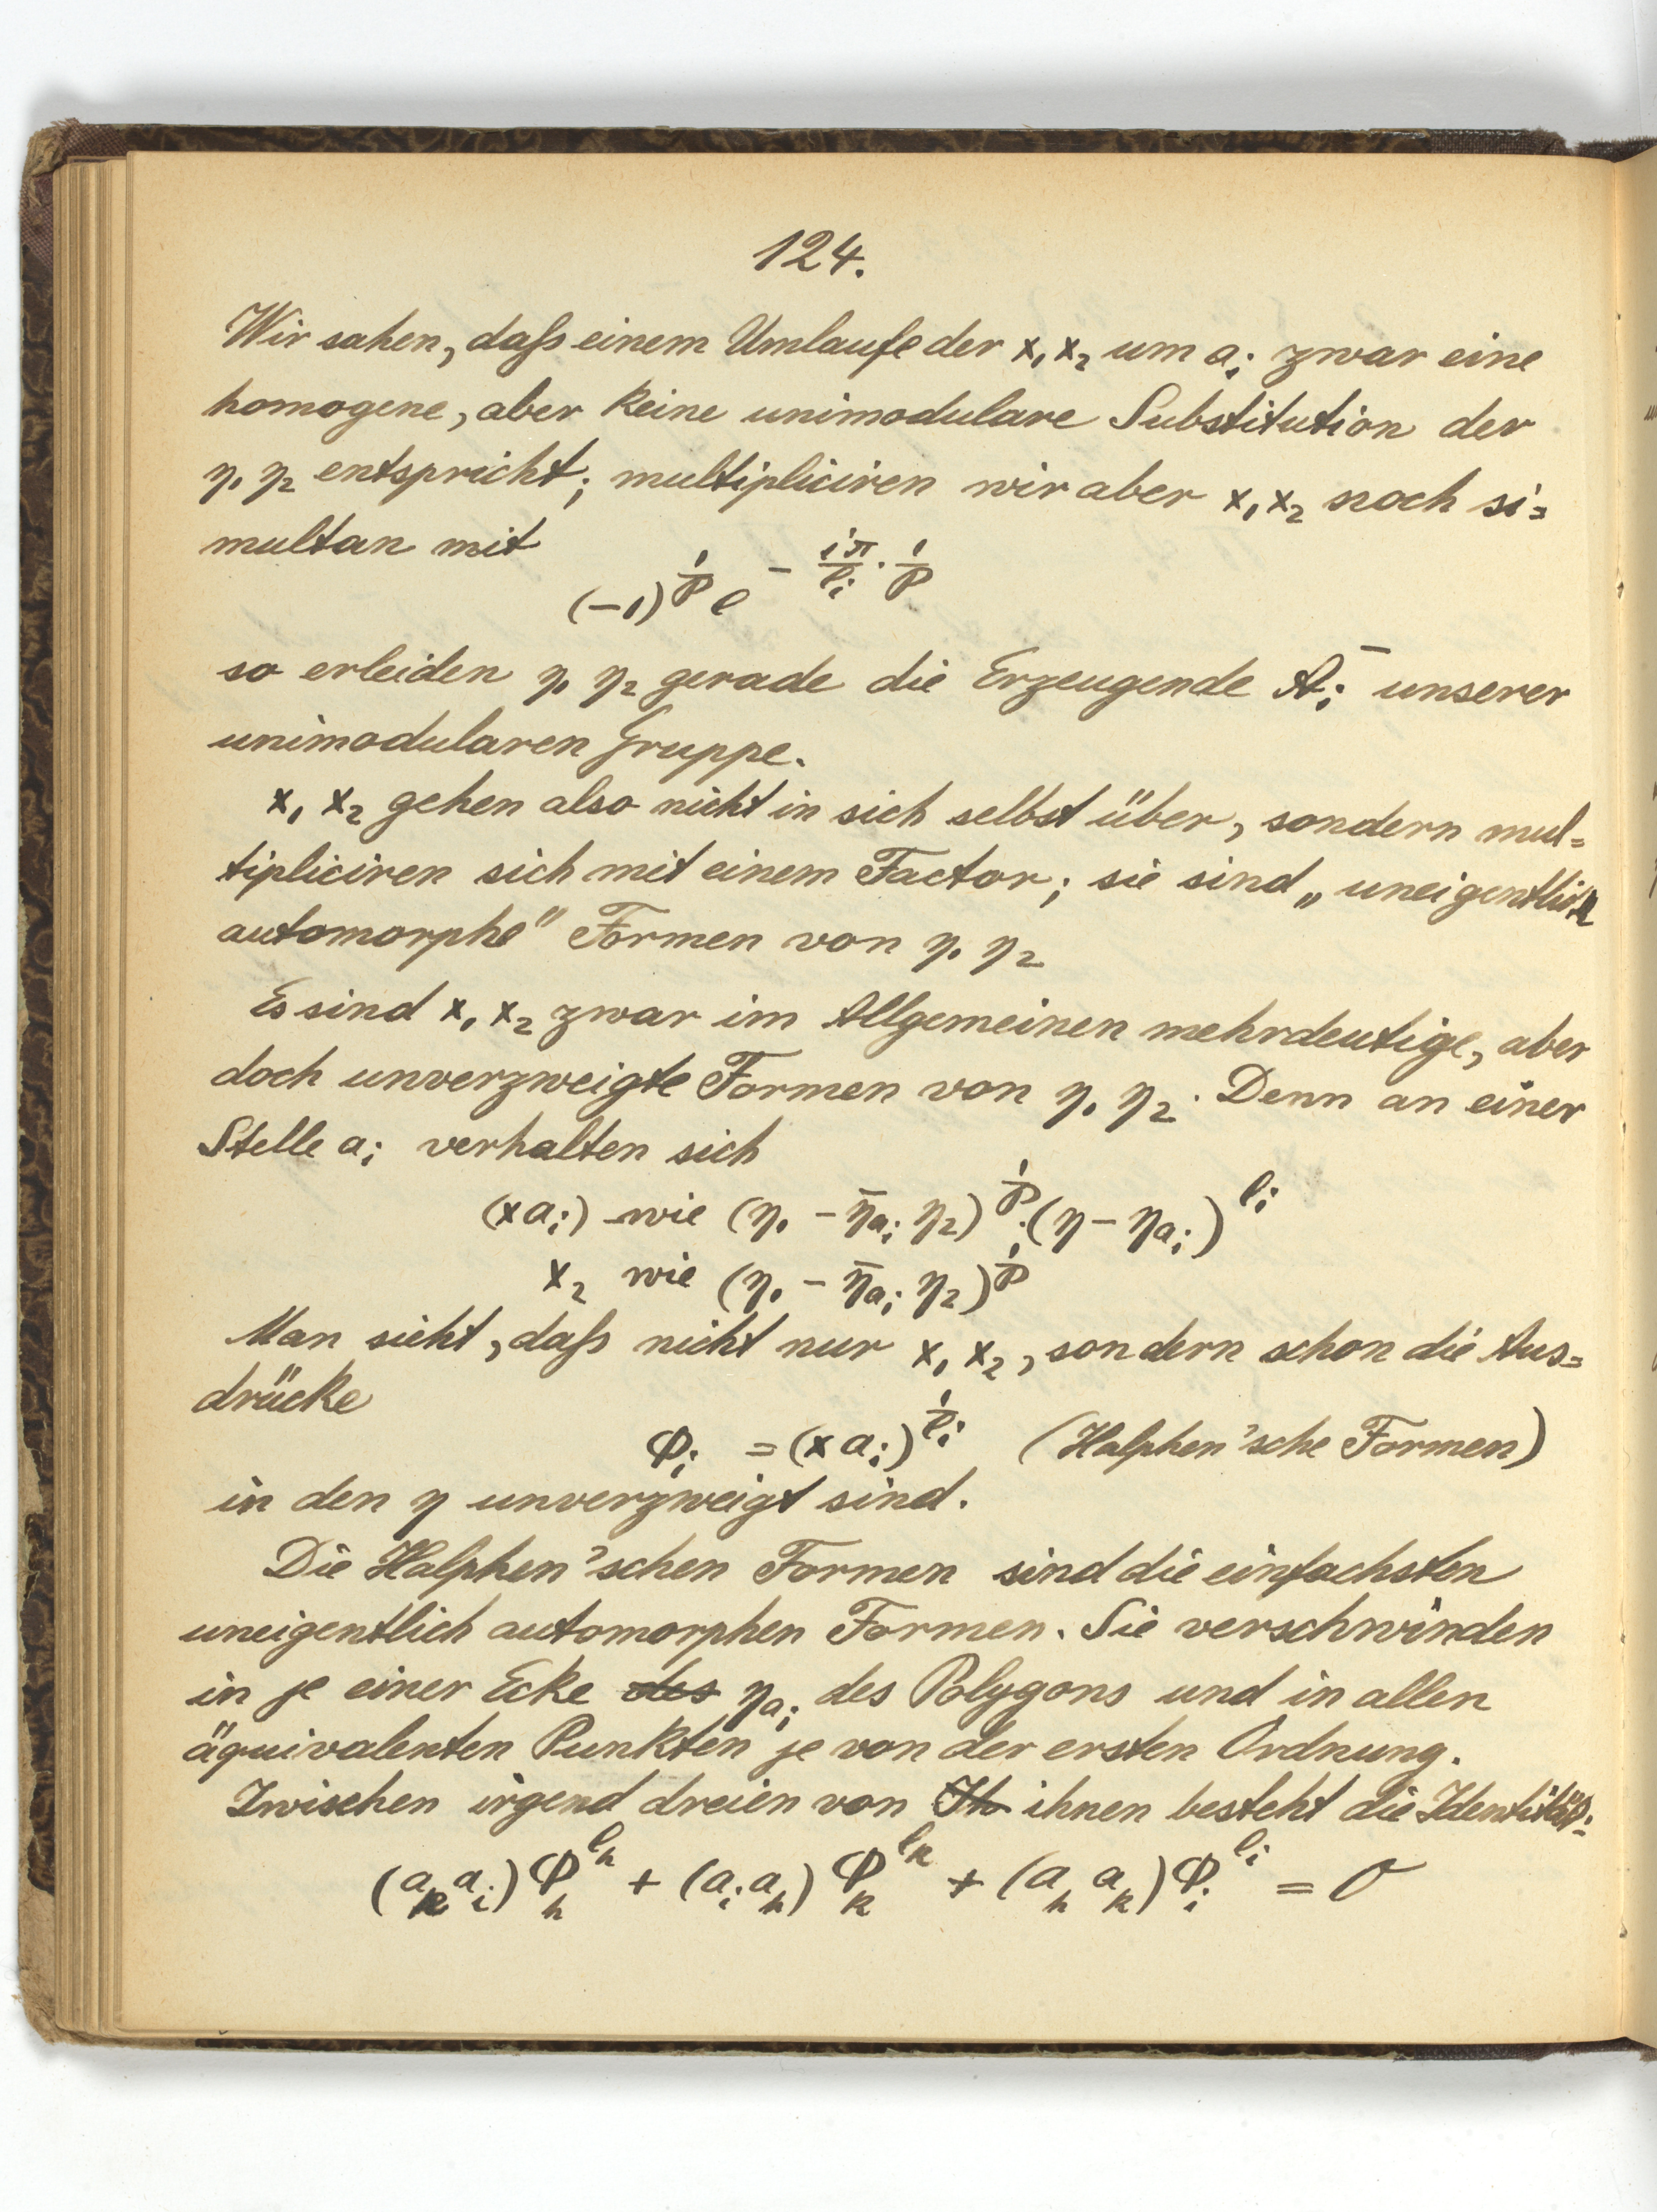 124.
Wir sahen, daſs einem Umlaufe der x₁ x₂ um aᵢ zwar eine
homogene, aber keine unimodulare Substitution der
η₁ η₂ entspricht; multipliciren wir aber x₁ x₂ noch si=
multan mit
(-1)^{1/p} e^{- iπ/lᵢ · 1/p}
so erleiden η₁ η₂ gerade die Erzeugende Āᵢ unserer
unimodularen Gruppe.
x₁ x₂ gehen also nicht in sich selbst über, sondern mul=
tipliciren sich mit einem Factor; sie sind „uneigentlich
automorphe" Formen von η₁ η₂
Es sind x₁ x₂ zwar im Allgemeinen mehrdeutige, aber
doch unverzweigte Formen von η₁ η₂. Denn an einer
Stelle aᵢ verhalten sich
(x aᵢ) wie (η₁ - η̄_{aᵢ} η₂)^{1/p} · (η - η_{aᵢ})^{lᵢ}
x₂ wie (η₁ - η̄_{aᵢ} η₂)^{1/p}
Man sieht, daſs nicht nur x₁ x₂, sondern schon die Aus=
drücke
φᵢ = (x aᵢ)^{1/lᵢ} (Halphen'sche Formen)
in den η unverzweigt sind.
Die Halphen'schen Formen sind die einfachsten
uneigentlich automorphen Formen. Sie verschwinden
in je einer Ecke des η_{aᵢ} des Polygons und in allen
äquivalenten Punkten je von der ersten Ordnung.
Zwischen irgend dreien von Ih ihnen besteht die Identität:
(a_k a_i) φ_h^{l_h} + (a_i a_h) φ_k^{l_k} + (a_h a_k) φ_i^{l_i} = 0